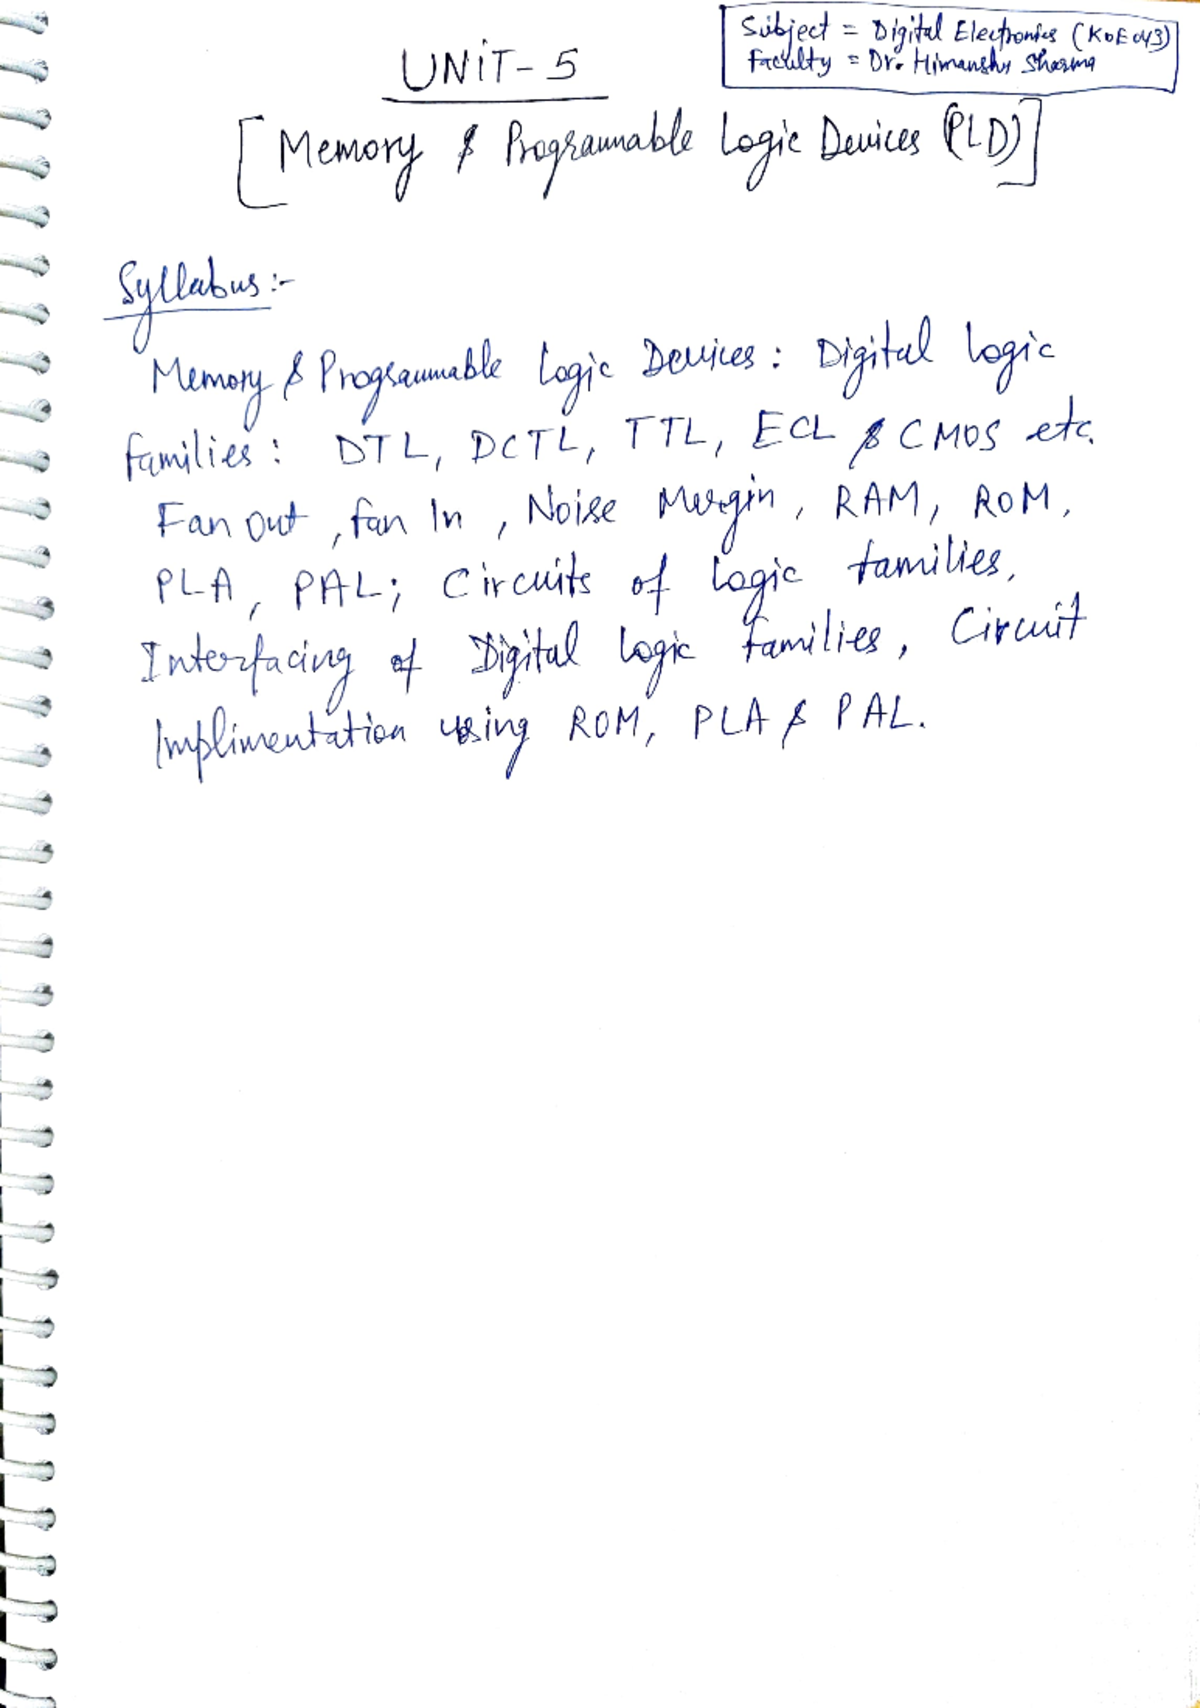 Subject = Digital Electronics (KOE043)
Faculty = Dr. Himanshu Sharma
UNIT-5
[Memory & Programmable Logic Devices (PLD)]
Syllabus:-
Memory & Programmable Logic Devices: Digital Logic
families: DTL, DCTL, TTL, ECL & CMOS etc.
Fan Out, fan In, Noise Margin, RAM, ROM,
PLA, PAL; Circuits of Logic families,
Interfacing of Digital Logic families, Circuit
Implimentation using ROM, PLA & PAL.